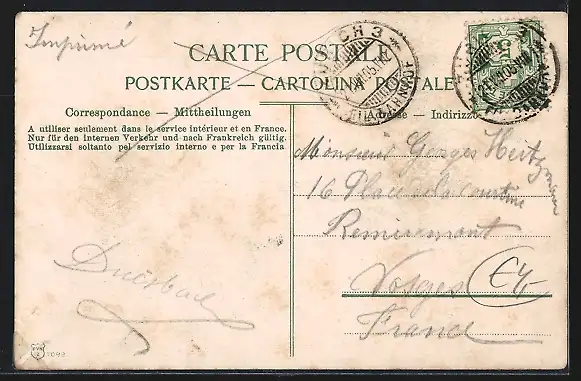 Imprimé
CARTE POSTALE
POSTKARTE — CARTOLINA POSTALE
Correspondance — Mittheilungen
A utiliser seulement dans le service intérieur et en France.
Nur für den innern Verkehr und nach Frankreich gültig.
Utilizzarsi soltanto pel servizio interno e per la Francia
Indirizzo
Monsieur Georges Heitzmann
16 Place de la Courtine
Remiremont
Vosges
France
€4,-
5